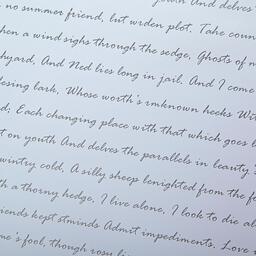 And delves
no summer friend, but wrden plot. Take coun
hen a wind sighs through the sedge, Ghosts of m
hyard, And Ned lies long in jail. And I come
esing lark, Whose worth's rmknown heeks Wit
d; Each changing place with that which goes b
t on youth And delves the parallels in beauty's
wintry cold, A silly sheep benighted from the fo
th a thorny hedge, I live alone, I look to die al
iends kept stminds Admit impediments. Love
me's fool, though rosy li